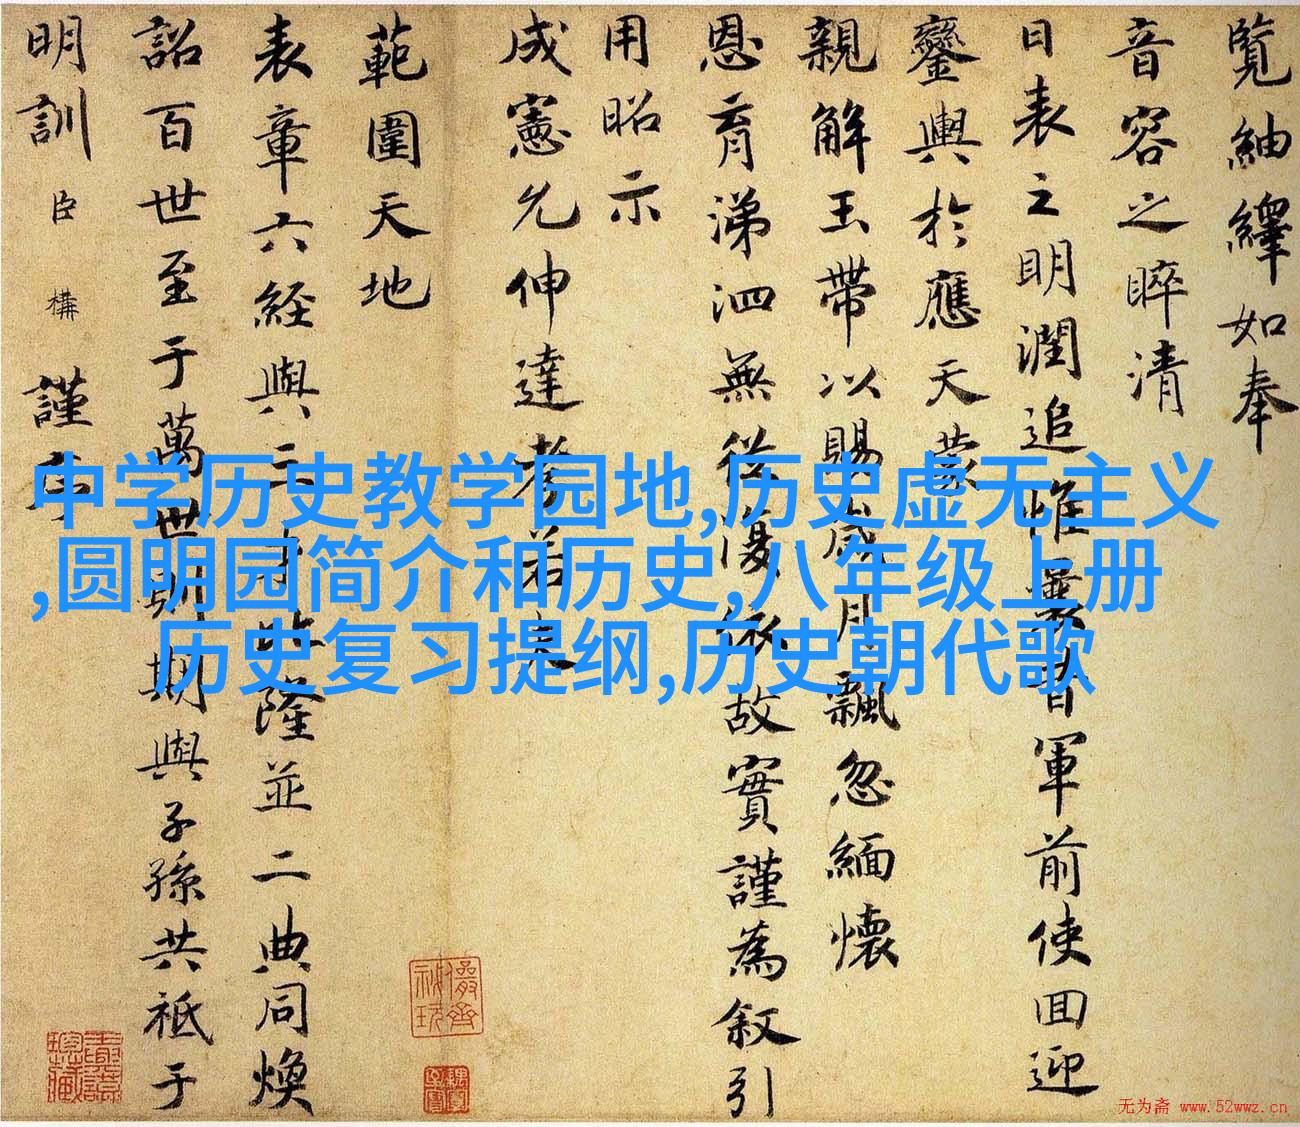 覽紬繹如奉
音容之睟清
日表之明潤追惟曩昔軍前使囬迎
鑾輿於應天蒙
親解玉帶以賜歲月飄忽緬懷
恩育涕泗無從復依故實謹為叙引
用昭示
成憲允伸達孝若夫
範圍天地
表章六經與才比隆並二典同煥
詔百世至于萬世期與子孫共祗于
明訓臣構謹序
中学历史教学园地,历史虚无主义
,圆明园简介和历史,八年级上册
历史复习提纲,历史朝代歌
无为斋 www.52wwz.cn